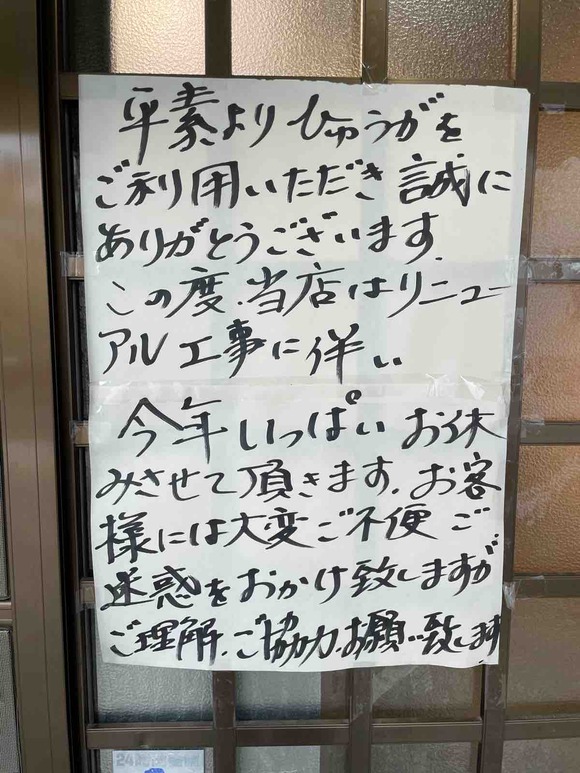 平素よりひゅうがを
ご利用いただき誠に
ありがとうございます.
この度.当店はリニュー
アル工事に伴い
今年いっぱいお休
みさせて頂きます.お客
様には大変ご不便ご
迷惑をおかけ致しますが
ご理解.ご協力.お願い致します
24